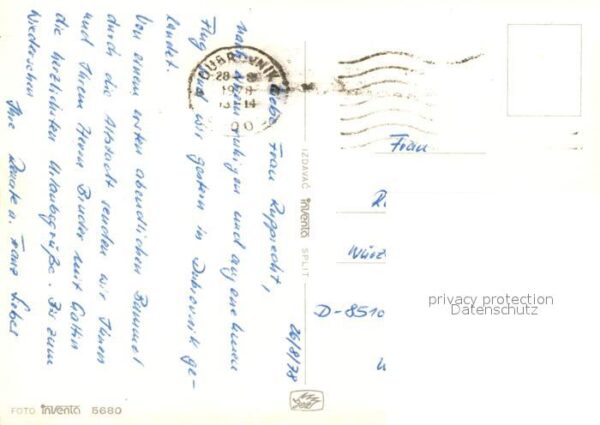 26/8/78
Liebe Frau Ruprecht,
nach einem ruhigen und angenehmen
Flug sind wir gestern in Dubrovnik ge-
landet.
Von einem ersten abendlichen Bummel
durch die Altstadt senden wir Ihnen
und Ihrem Herrn Bruder mit Gattin
die herzlichsten Urlaubsgrüße. Bis zum
Wiedersehen
Ihre Renate u. Franz
DUBROVNIK
28
19
13 14
IZDAVAČ inventa SPLIT
Frau
R
Würz
D-8510
privacy protection
Datenschutz
FOTO inventa 5680